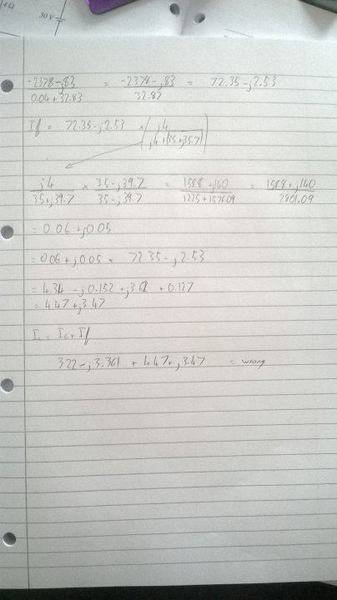 30V
-2378-j83 / 0.04+32.83 = -2378-j83 / 32.87 = 72.35-j2.53
If = 72.35-j2.53 × ( j4 / j4+(35+j35.7) )
j4 / 35+j39.7 × 35-j39.7 / 35-j39.7 = 158.8+j140 / 1225+1576.09 = 158.8+j140 / 2801.09
= 0.06+j0.05
= 0.06+j0.05 × 72.35-j2.53
= 4.34-j0.152+j3.62+0.127
= 4.47+j3.47
I1 = Ic+If
3.22-j3.361+4.47+j3.47 = wrong